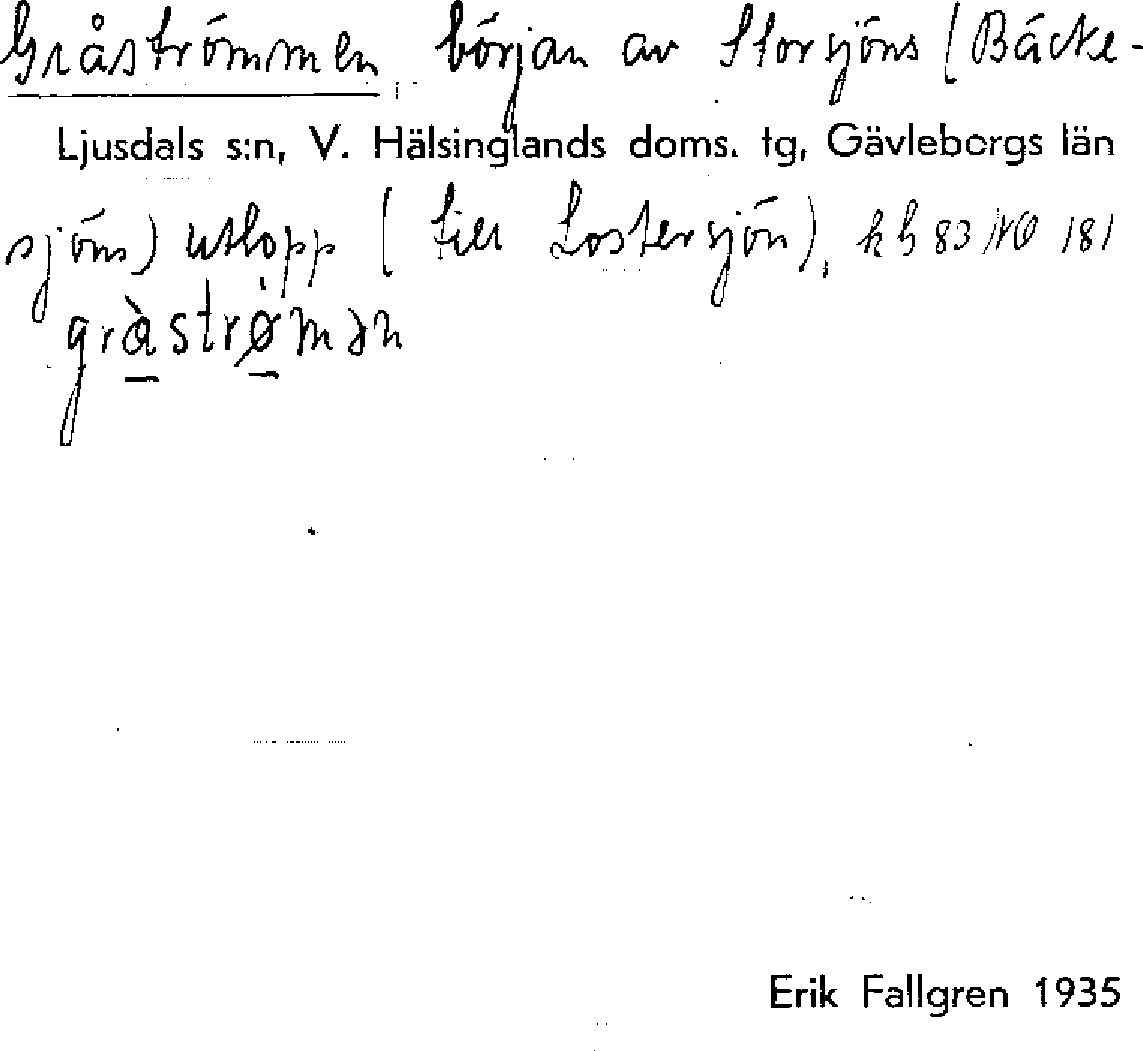 Gråströmmen, början av Storsjöns (Bäcke-
Ljusdals s:n, V. Hälsinglands doms. tg, Gävleborgs län
sjöns) utlopp (till Lostersjön), kb 83 NO 181
grɑ̀strømən
Erik Fallgren 1935